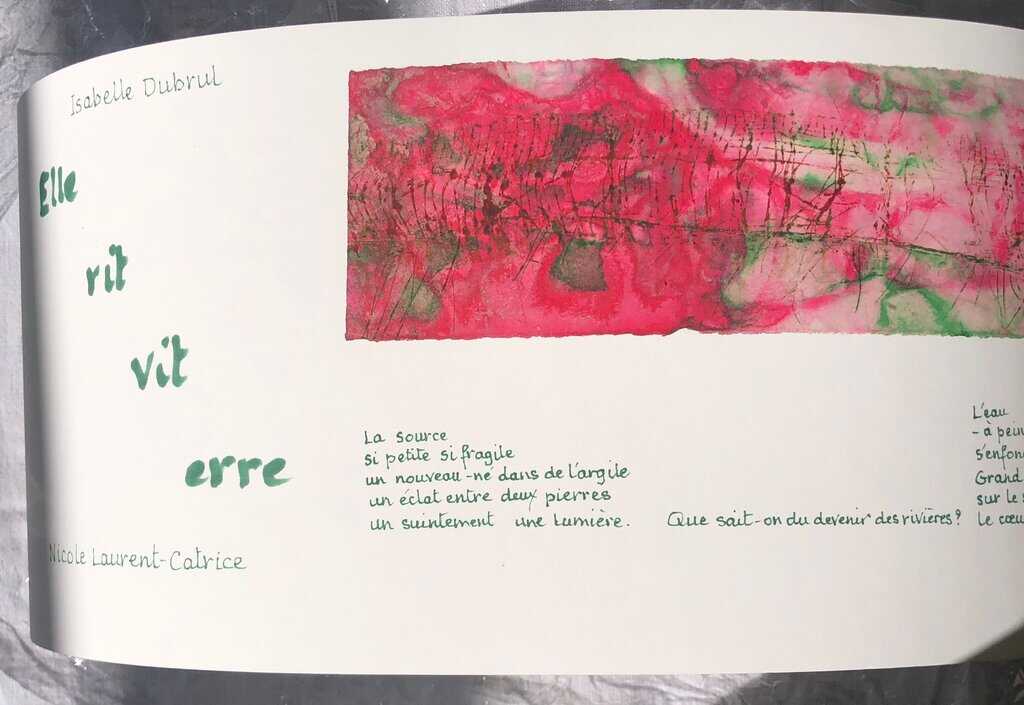 Isabelle Dubrul
Elle
rit
vit
erre
Nicole Laurent-Catrice
La source
si petite si fragile
un nouveau-né dans de l'argile
un éclat entre deux pierres
un suintement une lumière.
Que sait-on du devenir des rivières?
L'eau
- à
Grand
sur le
le